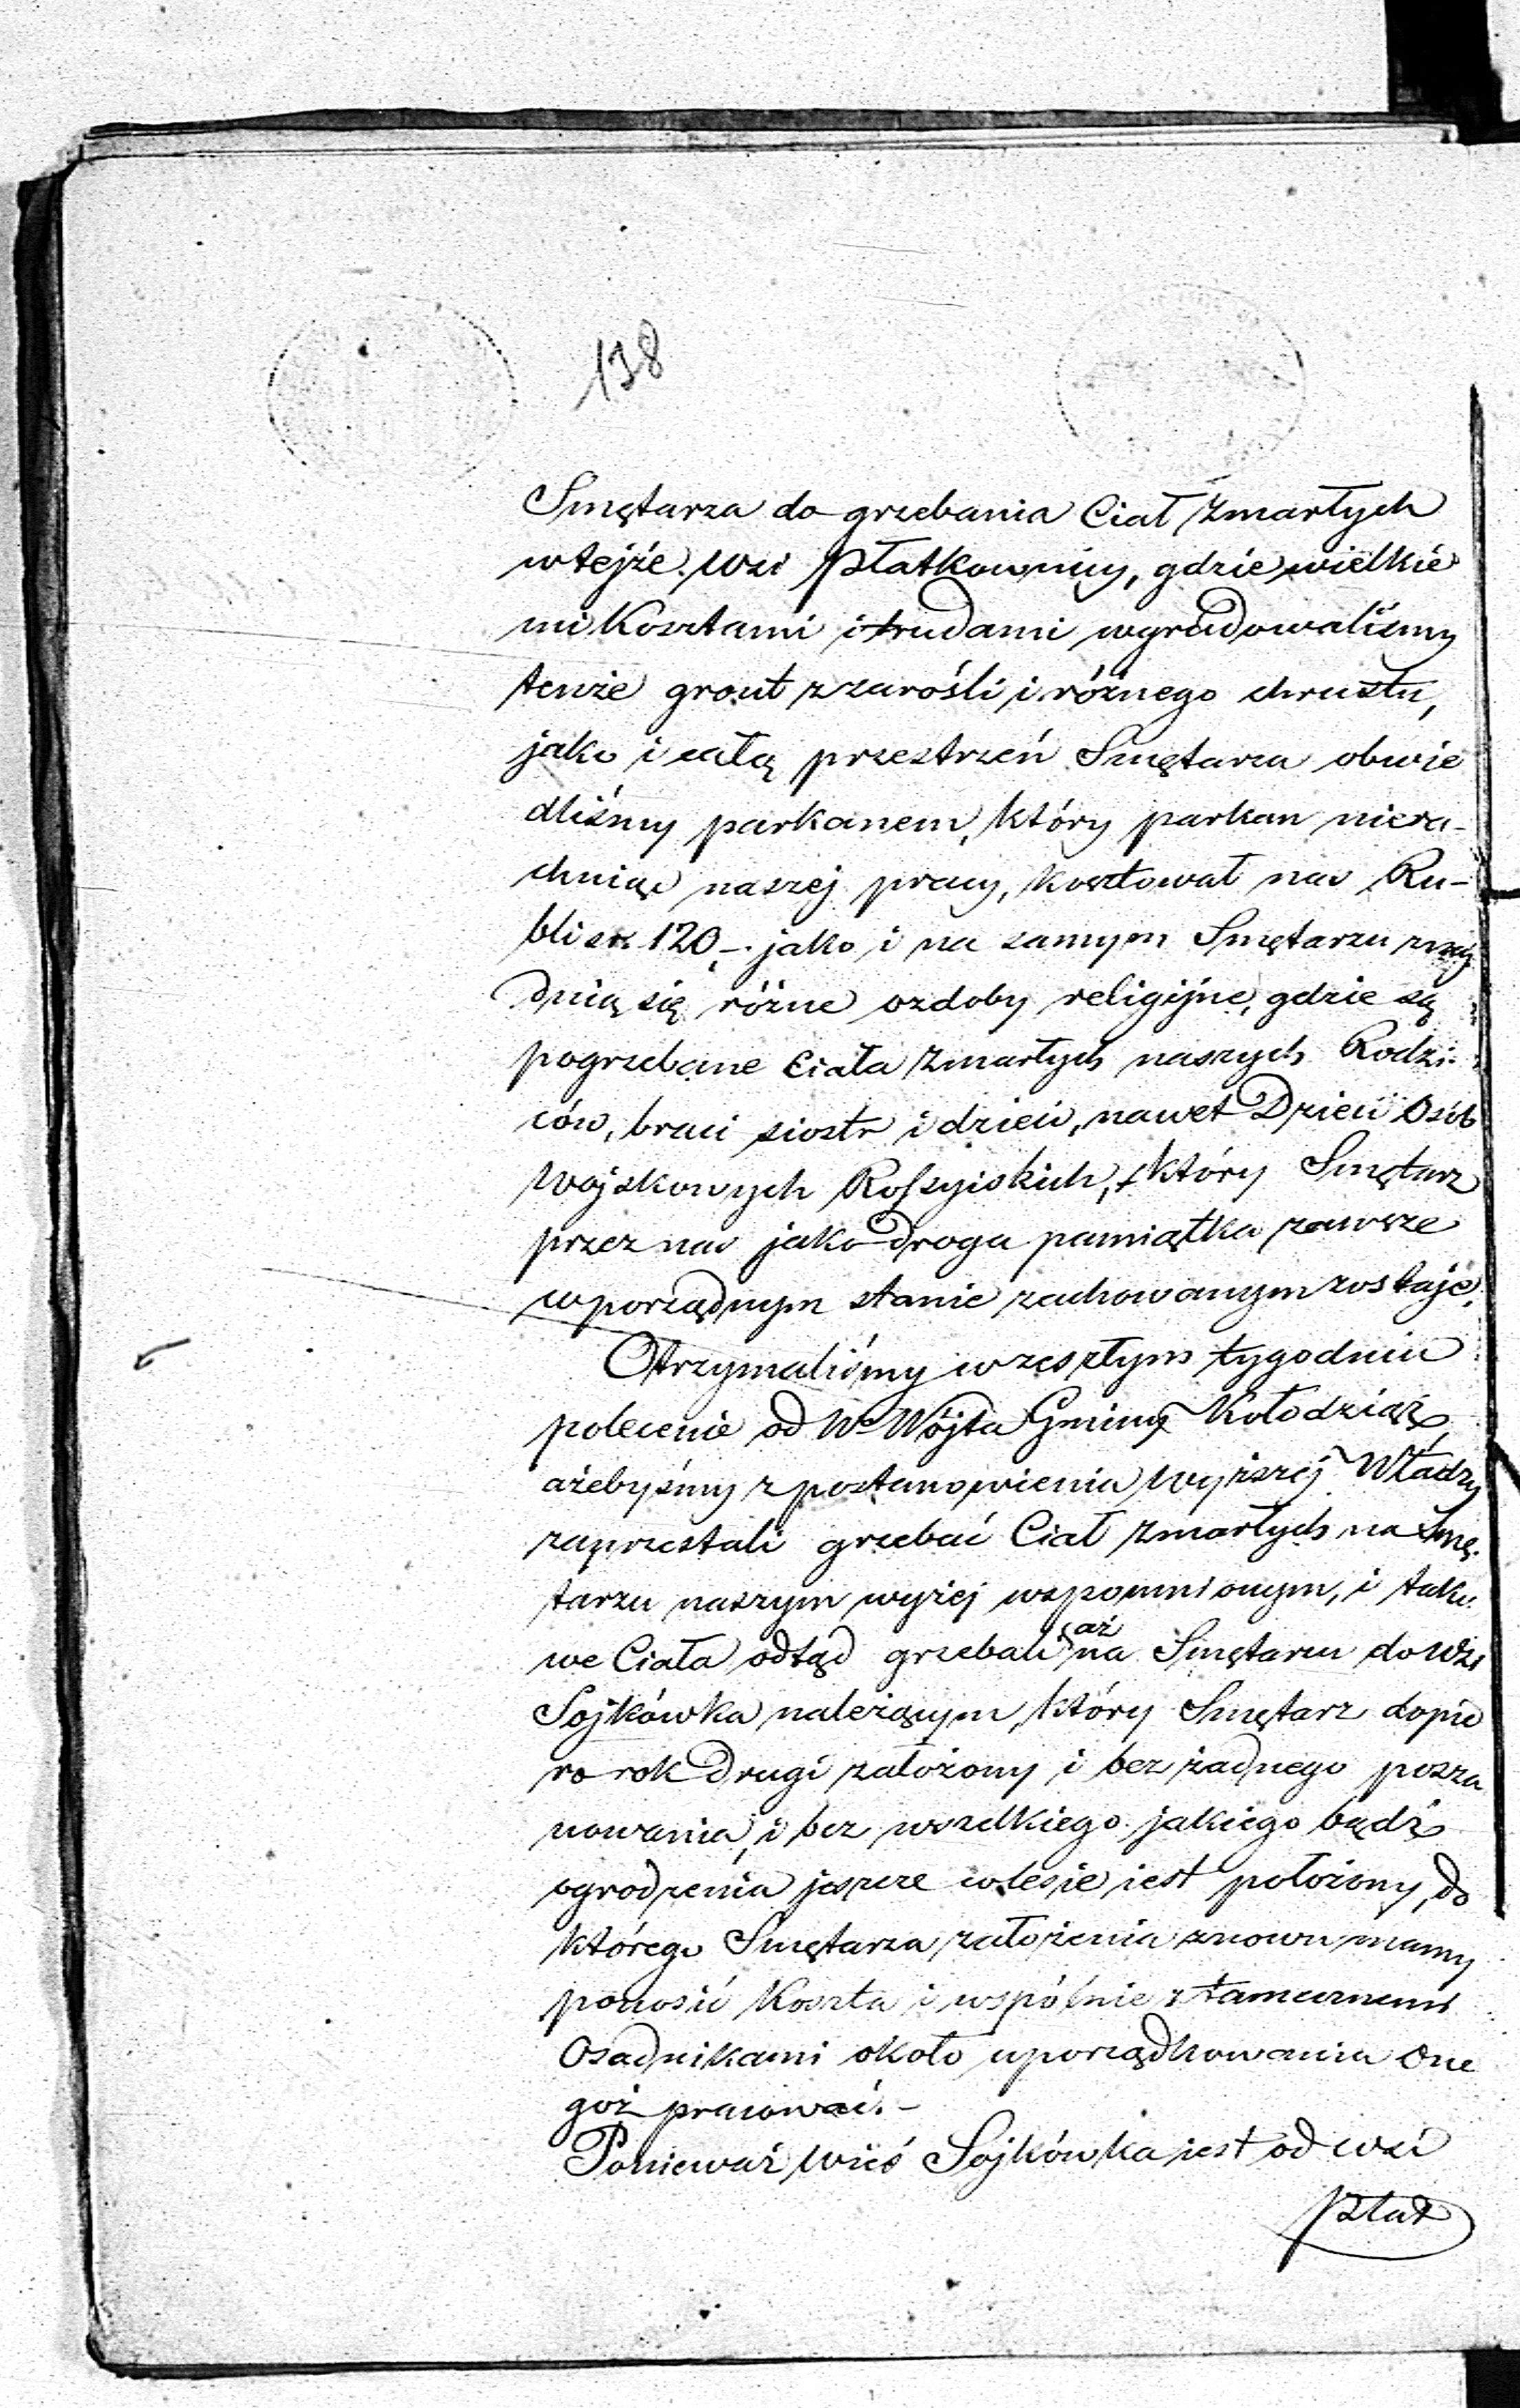 138
Smętarza do grzebania Ciał Zmarłych
w tejże wsi Płatkownicy, gdzie wielkie
mi Kosztami i trudami wyrudowaliśmy
tenże gront z zarośli i różnego chrustu,
jako i całą przestrzeń Smętarza obwie
dliśmy parkanem, który parkan niera-
chując naszej pracy, kosztował nas Ru-
bli sr. 120 -. jako i na samym Smętarzu znaj
dują się różne ozdoby religijne, gdzie są
pogrzebane Ciała Zmarłych naszych Rodzi-
ców, braci siostr i dzieci, nawet Dzieci Osób
Wojskowych Rossyiskich, który Smętarz
przez nas jako droga pamiątka zawsze
w porządnym stanie zachowanym zostaje.
Otrzymaliśmy w zeszłym tygodniu
polecenie od W. Wójta Gminy Kołodziąż
ażebyśmy z postanowienia Wyższej Władzy
zaprzestali grzebać Ciał Zmarłych na Smę-
tarzu naszym wyżej wspomnionym, i tako-
we Ciała odtąd grzebali aż na Smętarzu do Wsi
Sojkówka należącym, który Smętarz dopie
ro rok drugi założony i bez żadnego posza
nowania, i bez wszelkiego jakiego bądź
ogrodzenia jeszcze w lesie jest położony, do
którego Smętarza założenia znowu mamy
ponosić Koszta i wspólnie z tamecznemi
Osadnikami około uporządkowania One
goż pracować. -
Ponieważ Wieś Sojkówka jest od wsi
Płat